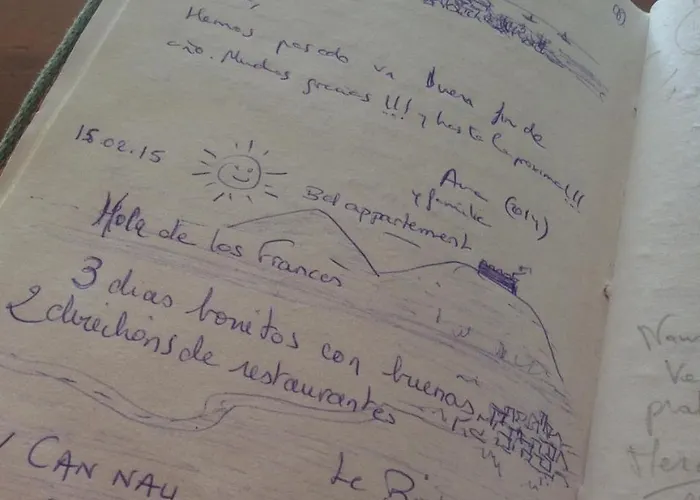 Hemos pasado un buen fin de
año. Muchas gracias !!! y hasta la proxima!!!
Ana (2014)
y familia
15.02.15
Bel appartement
Hola de los Frances
3 dias bonitos con buenas
2 directions de restaurantes
CAN NAU
Le